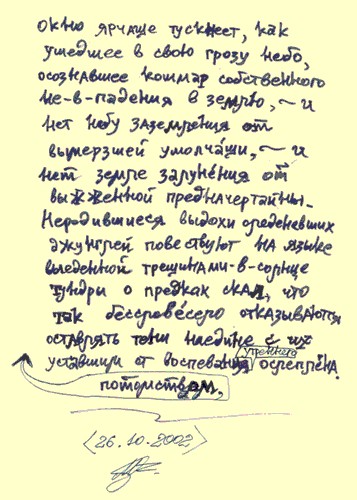 окно ярчаще тускнеет, как
ушедшее в свою грозу небо,
осознавшее кошмар собственного
не-в-падения в землю, ~ и
нет небу заземления от
вымерзшей умолчащи, ~ и
нет земле зарунения от
выжженной предначертайны.
Неродившиеся выдохи оледеневших
джунглей повествуют на языке
выеденной трещинами-в-солнце
тундры о предках скал, что
так бессловесело отказываются
оставлять тени наедине с их
уставшим от воспевания утреннего ослеплена.
потомством,
<26.10.2002>